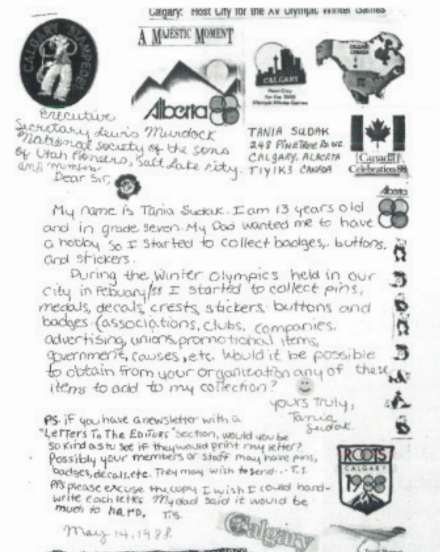 Calgary: Host City for the XV Olympic Winter Games
CALGARY STAMPEDE
A MAJESTIC MOMENT
Alberta
CALGARY
Host City
for the 1988
Olympic Winter Games
CALGARY
CANADA
Executive
Secretary Lewis Murdock
National society of the sons
of Utah Pioneers, Salt Lake city.
and members
Dear Sir,
TANIA SUDAK
248 PINETREE Rd NE
CALGARY, ALBERTA
T1Y1K3 CANADA
Canada
Celebration 88
Alberta
My name is Tania Sudak. I am 13 years old
and in grade seven. My Dad wanted me to have
a hobby so I started to collect badges, buttons,
and stickers.
During the Winter Olympics held in our
city in Febuary/88 I started to collect pins,
medals, decals, crests, stickers, buttons and
badges. (associations, clubs, companies,
advertising, unions, promotional items,
government, causes, etc. Would it be possible
to obtain from your organization any of these
items to add to my collection?
yours Truly,
Tania
Sudak.
PS. if you have a newsletter with a
"Letters To The Editors" section, would you be
so kind as to see if they would print my letter?
Possibly your members or staff may have pins,
badges, decals, etc. They may wish to send... T.S.
PPS please excuse the copy I wish I could hand-
write each letter. My dad said it would be
much to hard. T.S.
May 14, 1988
ROOTS
CALGARY
1988
Calgary